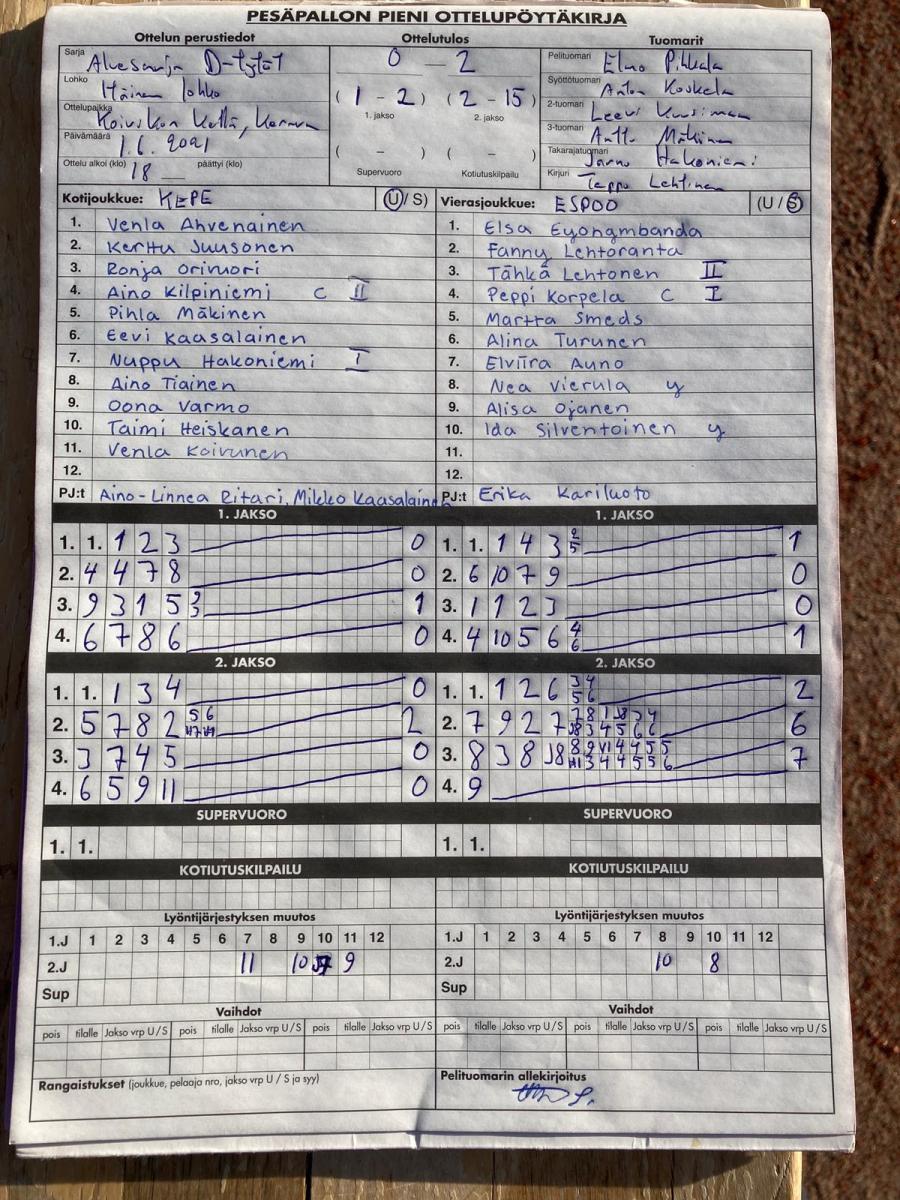 PESÄPALLON PIENI OTTELUPÖYTÄKIRJA
Ottelun perustiedot
Ottelutulos
Tuomarit
Sarja Aluesarja D-tytöt
0 – 2
Pelituomari Elmo Pihkala
Lohko Hämeen lohko
(1 - 2) (2 - 15)
1. jakso 2. jakso
Syöttötuomari Anton Koskela
Ottelupaikka
2-tuomari Leevi
Päivämäärä 1.6.2021
3-tuomari Antti Mäkinen
( - ) ( - )
Takarajatuomari Jarno Hakoniemi
Ottelu alkoi (klo) 18 päättyi (klo)
Supervuoro Kotiutuskilpailu
Kirjuri Teppo Lehtinen
Kotijoukkue: KEPE (U / S)
Vierasjoukkue: ESPOO (U / S)
1. Venla Ahvenainen
2. Kerttu Juusonen
3. Ronja Orivuori
4. Aino Kilpiniemi C II
5. Pihla Mäkinen
6. Eevi Kaasalainen
7. Nuppu Hakoniemi I
8. Aino Tiainen
9. Oona Varmo
10. Taimi Heiskanen
11. Venla Koivunen
12.
PJ:t Aino-Linnea Ritari, Mikko Kaasalainen
1. Elsa Eyongmbanda
2. Fanny Lehtoranta
3. Tähkä Lehtonen II
4. Peppi Korpela C I
5. Martta Smeds
6. Alina Turunen
7. Elviira Auno
8. Nea Vierula y
9. Alisa Ojanen
10. Ida Silventoinen y
11.
12.
PJ:t Erika Kariluoto
1. JAKSO
1. 1. 1 2 3 0
2. 4 4 7 8 0
3. 9 3 1 5 2 3 1
4. 6 7 8 6 0
1. JAKSO
1. 1. 1 4 3 2 5 1
2. 6 10 7 9 0
3. 1 1 2 3 0
4. 4 10 5 6 4 6 1
2. JAKSO
1. 1. 1 3 4 0
2. 5 7 8 2 5 6 2
3. 3 7 4 5 0
4. 6 5 9 11 0
2. JAKSO
1. 1. 1 2 6 3 4 5 6 2
2. 7 9 2 7 7 8 1 J8 3 4 6
J8 3 4 5 6 6
3. 8 3 8 J8 8 9 V1 4 4 5 5 7
3 4 4 5 5 6
4. 9
SUPERVUORO
1. 1.
SUPERVUORO
1. 1.
KOTIUTUSKILPAILU
KOTIUTUSKILPAILU
Lyöntijärjestyksen muutos
1.J 1 2 3 4 5 6 7 8 9 10 11 12
2.J 11 10 9
Sup
Lyöntijärjestyksen muutos
1.J 1 2 3 4 5 6 7 8 9 10 11 12
2.J 10 8
Sup
Vaihdot
pois tilalle Jakso vrp U/S pois tilalle Jakso vrp U/S pois tilalle Jakso vrp U/S
Vaihdot
pois tilalle Jakso vrp U/S pois tilalle Jakso vrp U/S pois tilalle Jakso vrp U/S
Rangaistukset (joukkue, pelaaja nro, jakso vrp U / S ja syy)
Pelituomarin allekirjoitus